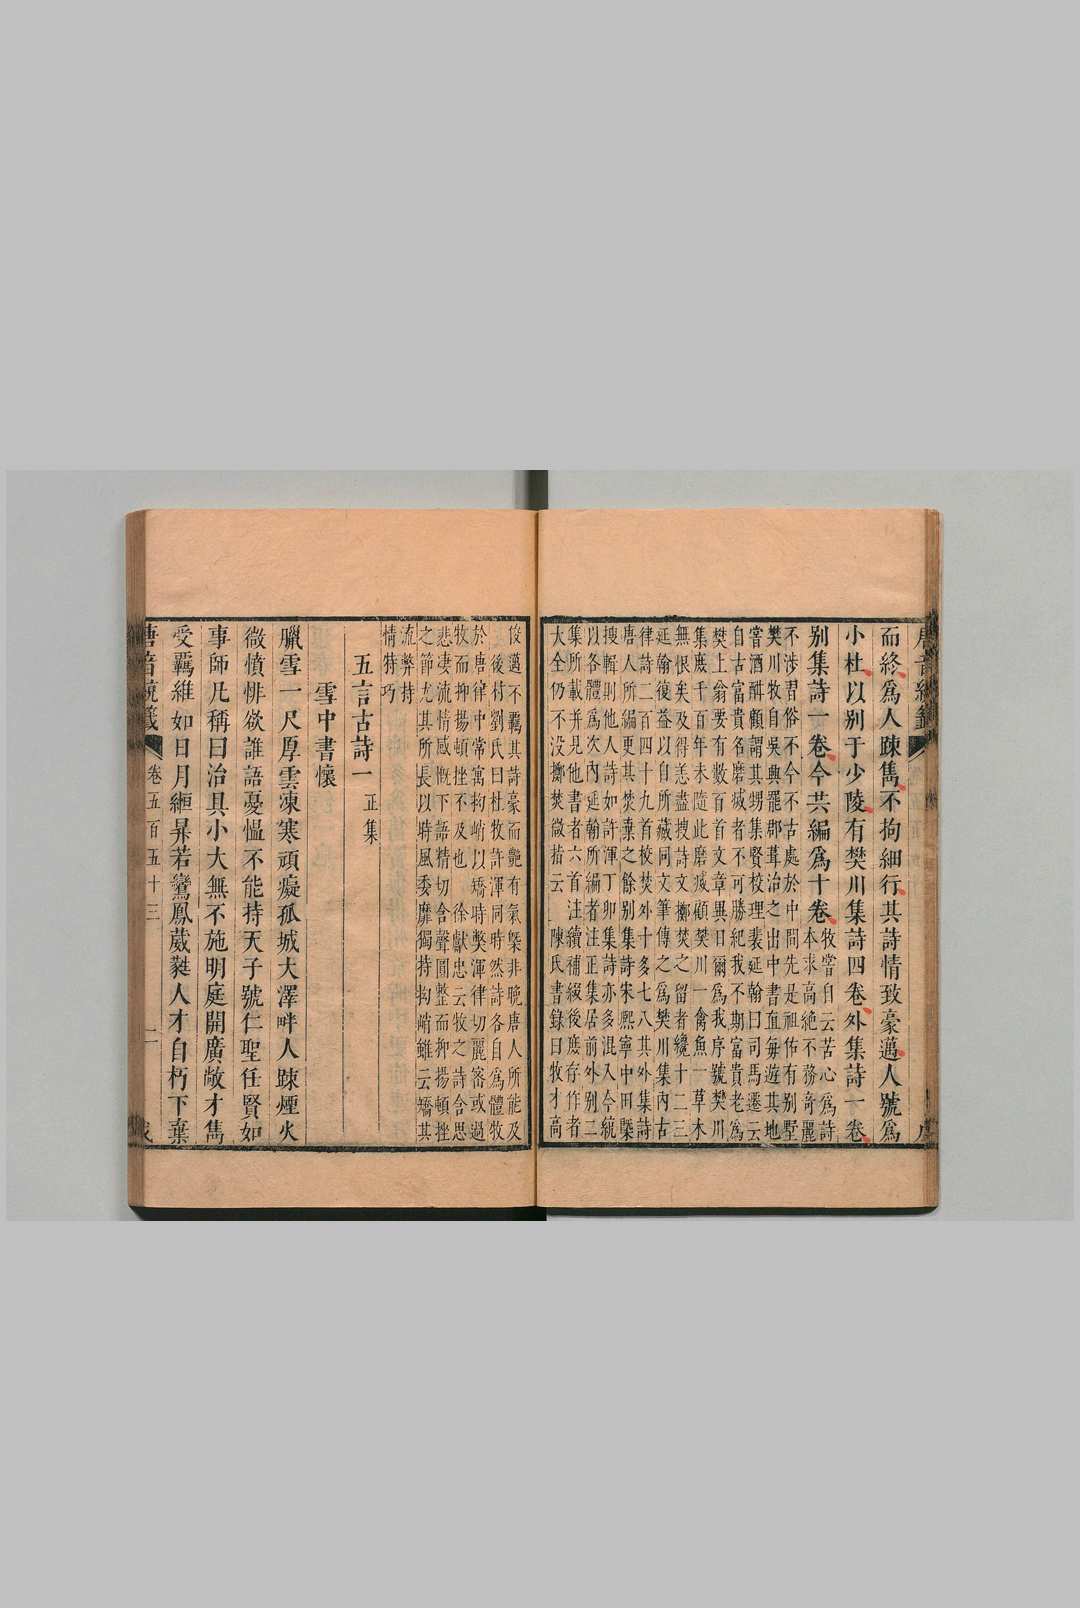 而終爲人踈雋不拘細行其詩情致豪邁人號爲
小杜以别于少陵有樊川集詩四卷外集詩一卷
别集詩一卷今共編爲十卷
牧嘗自云苦心爲詩
本求高絶不務奇麗
不涉習俗不今不古處於中間先是祖佑有别墅
樊川牧自吳興罷郡葺治之出中書直每遊其地
嘗酒酣顧謂其甥集賢校理裴延翰曰司馬遷云
自古富貴名磨滅者不可勝紀我不期富貴老爲
樊上翁要有數百首文章異日爾爲我序號樊川
集庶千百年未隨此磨滅顧樊川一禽魚一草木
無恨矣及得恙盡搜詩文擲焚之留者纔十二三
延翰復益以自所藏同文筆傳之爲樊川集内古
律詩二百四十九首校焚外十多七八其外集詩
唐人所編更其焚棄之餘别集詩宋熙寧中田槩
搜輯則他人詩如許渾丁卯集詩亦多混入今統
以各體爲次内延翰所編者注正集居前外别二
集所載并見他書者六首注續補綴後庶存作者
大全仍不没擲焚微指云　陳氏書錄曰牧才高
俊邁不羈其詩豪而艶有氣槩非晚唐人所能及
後村劉氏曰杜牧許渾同時然詩各自爲體牧
於唐律中常寓拗峭以矯時弊渾律切麗密或過
牧而抑揚頓挫不及也　徐獻忠云牧之詩含思
悲凄流情感慨下語精切含聲圓整而抑揚頓挫
之節尤其所長以時風委靡獨持拗峭雖云矯其
流弊持
情特巧
五言古詩一 正集
雪中書懷
臘雪一尺厚雲凍寒頑癡孤城大澤畔人踈煙火
微憤悱欲誰語憂慍不能持天子號仁聖任賢如
事師凡稱曰治具小大無不施明庭開廣敞才雋
受羈維如日月緪昇若鸞鳳葳蕤人才自朽下棄
唐音統籖
卷五百五十三
二